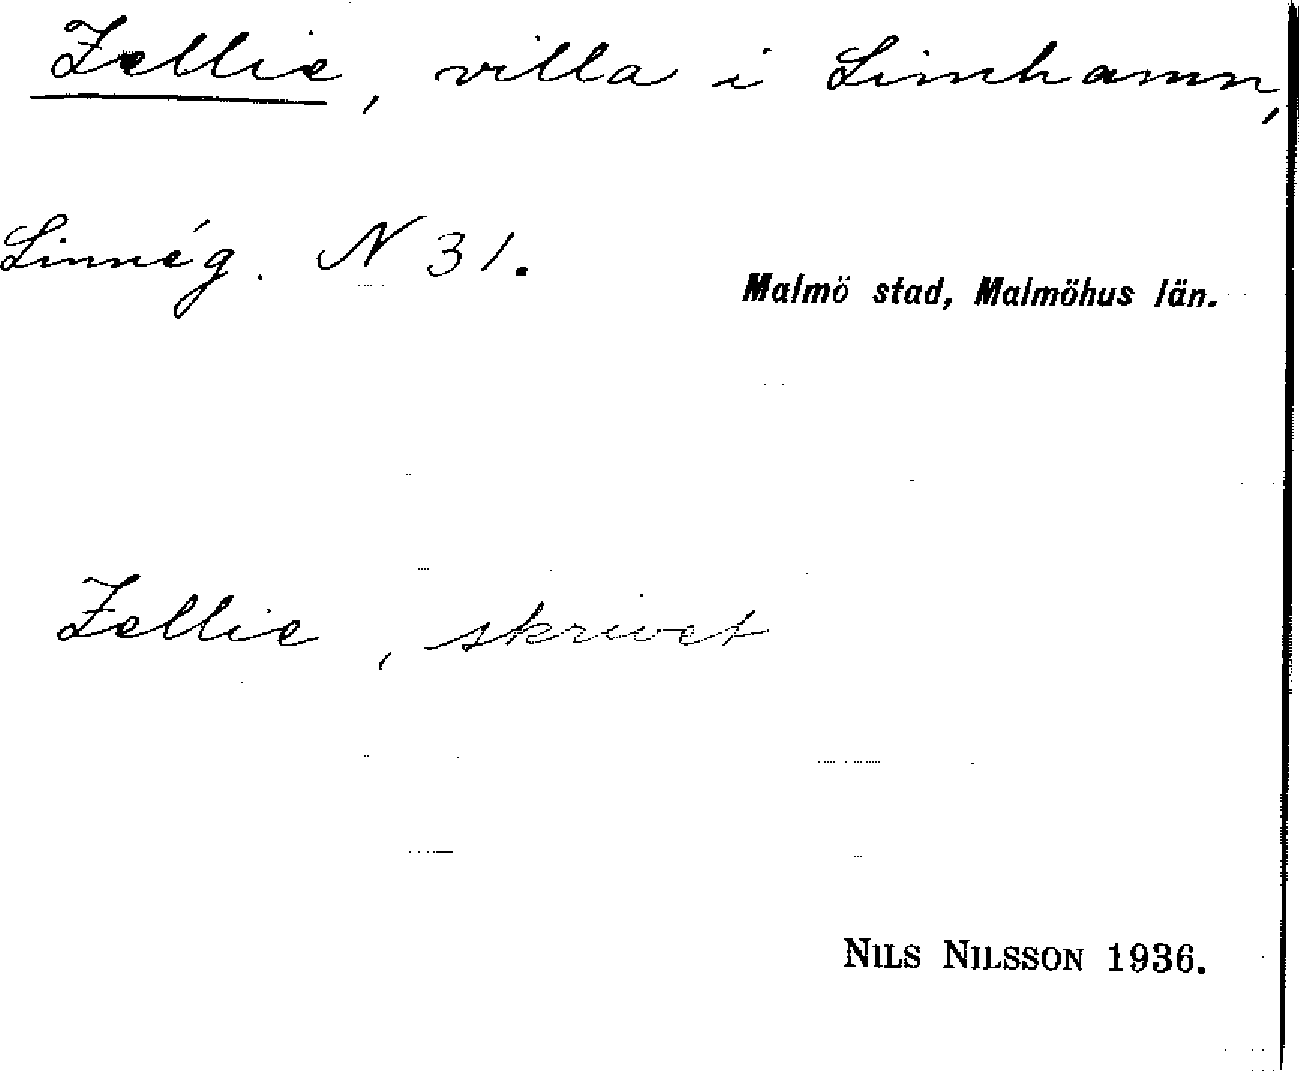 Zellie, villa i Limhamn,
Linnég. N 31.
Malmö stad, Malmöhus län.
Zellie, skrivet
NILS NILSSON 1936.